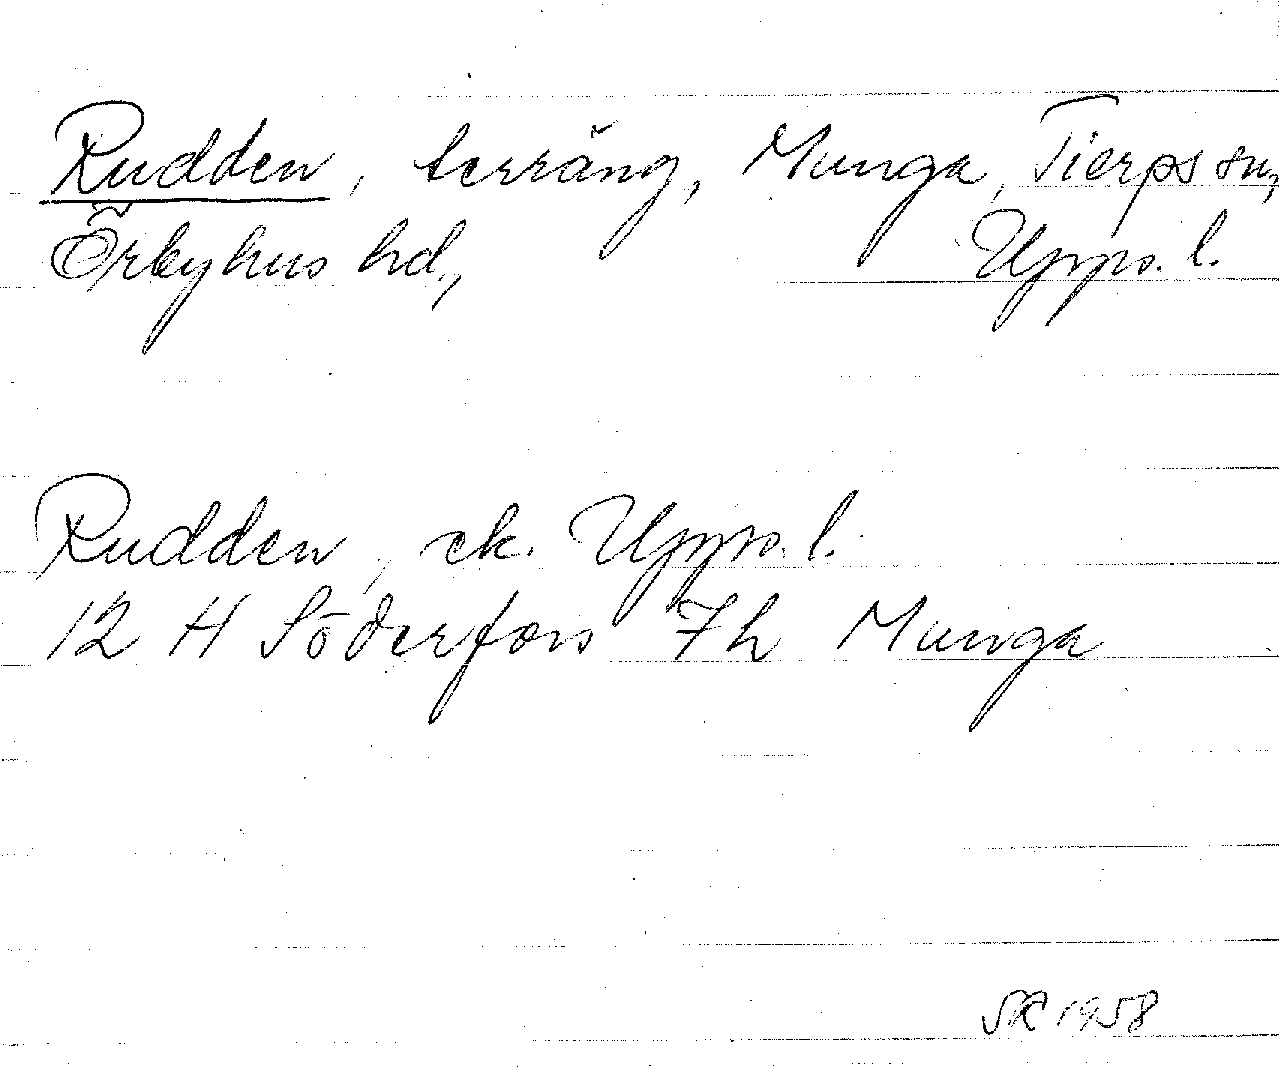 Rudden, terräng, Munga, Tierps sn,
Örbyhus hd., Upps. l.
Rudden, ek. Upps. l.
12 H Söderfors 7h Munga
SR 1958